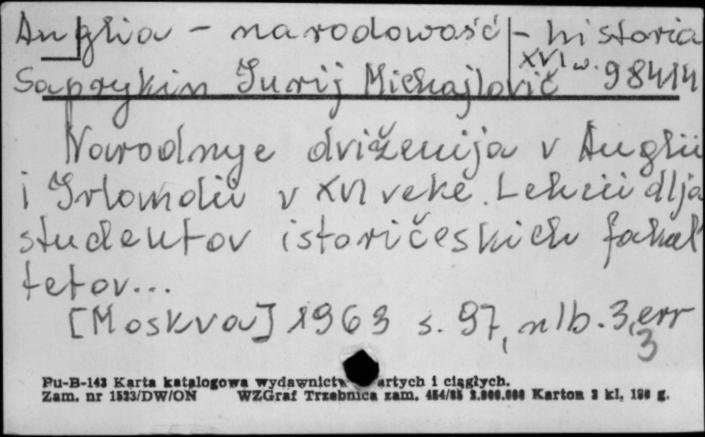 Anglia - narodowość - historia
XVI w. 98414
Saprykin Jurij Michajlovič
Narodnye dviženija v Anglii
i Irlandii v XVI veke. Lekcii dlja
studentov istoričeskich fakul
tetov...
[Moskva] 1963 s. 97, nlb. 3, err
3
Pu-B-143 Karta katalogowa wydawnictw zwartych i ciągłych.
Zam. nr 1523/DW/ON WZGraf Trzebnica zam. 454/85 2.000.000 Karton 3 kl. 190 g.